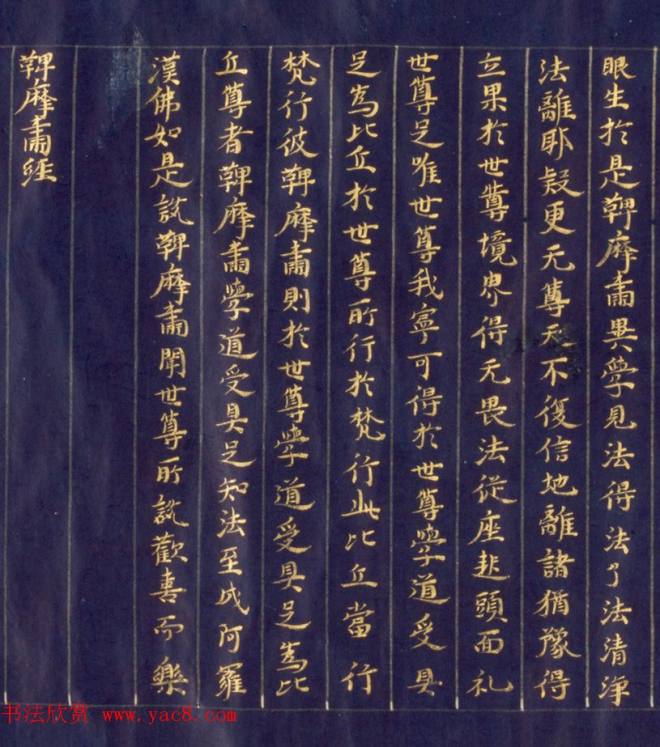 眼生於是鞞摩肅異學見法得法了法清淨
法離耶疑更无尊天不復信地離諸猶豫得
立果於世尊境界得无畏法從座起頭面礼
世尊足唯世尊我寧可得於世尊學道受具
足為比丘於世尊所行於梵行此比丘當行
梵行彼鞞摩肅則於世尊學道受具足為比
丘尊者鞞摩肅學道受具足知法至成阿羅
漢佛如是說鞞摩肅聞世尊所說歡喜而樂
鞞摩肅經
书法欣赏 www.yac8.com